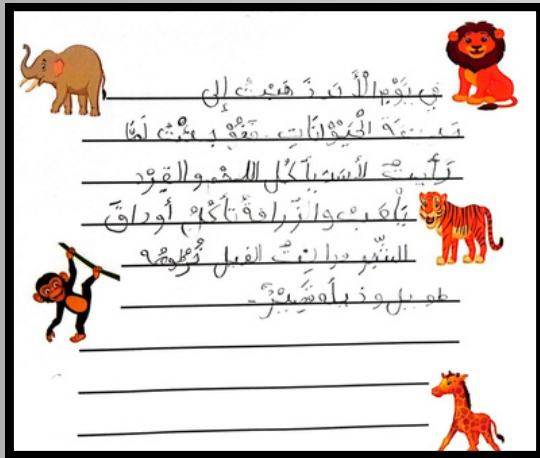 في يَوْمِ الْأَحَدِ ذَهَبْتُ إلى
حديقة الْحَيَوَانَاتِ لَمَّا
رَأَيْتُ الأسَدَ يَأْكُلُ اللحْمَ والقِرْد
يَلْعَب والزَّرافةُ تَأكُلُ أوراقَ
الشَّجَرِ ورايْتُ الفيل خُرْطومُه
طويل وذيله قَصِيْرٌ.